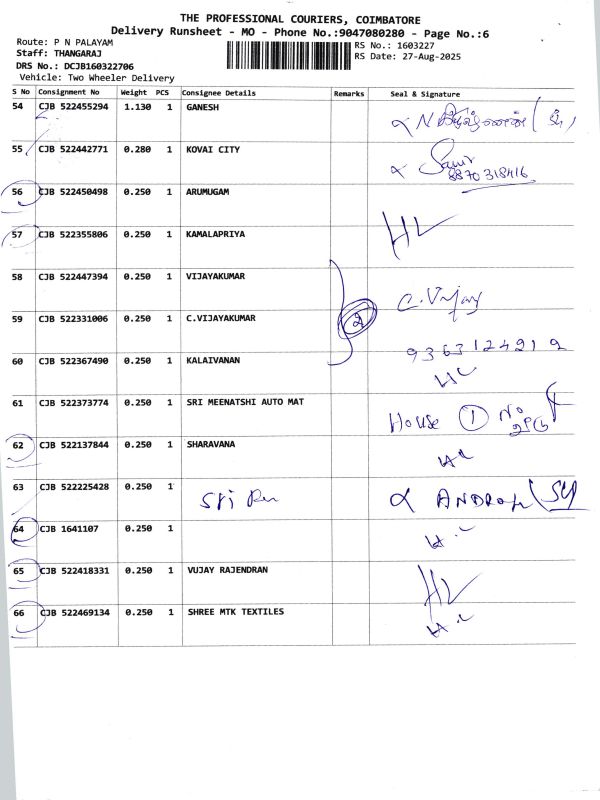 THE PROFESSIONAL COURIERS, COIMBATORE
Delivery Runsheet - MO - Phone No.:9047080280 - Page No.:6
Route: P N PALAYAM
Staff: THANGARAJ
DRS No.: DCJB160322706
Vehicle: Two Wheeler Delivery
RS No.: 1603227
RS Date: 27-Aug-2025
S No Consignment No Weight PCS Consignee Details Remarks Seal & Signature
54 CJB 522455294 1.130 1 GANESH
55 CJB 522442771 0.280 1 KOVAI CITY
8870318416
56 CJB 522450498 0.250 1 ARUMUGAM
57 CJB 522355806 0.250 1 KAMALAPRIYA HL
58 CJB 522447394 0.250 1 VIJAYAKUMAR C.Vijay
59 CJB 522331006 0.250 1 C.VIJAYAKUMAR 2
9363124212
60 CJB 522367490 0.250 1 KALAIVANAN
61 CJB 522373774 0.250 1 SRI MEENATSHI AUTO MAT House 1 No
62 CJB 522137844 0.250 1 SHARAVANA
63 CJB 522225428 0.250 1 Sri
64 CJB 1641107 0.250 1
65 CJB 522418331 0.250 1 VUJAY RAJENDRAN HL
66 CJB 522469134 0.250 1 SHREE MTK TEXTILES